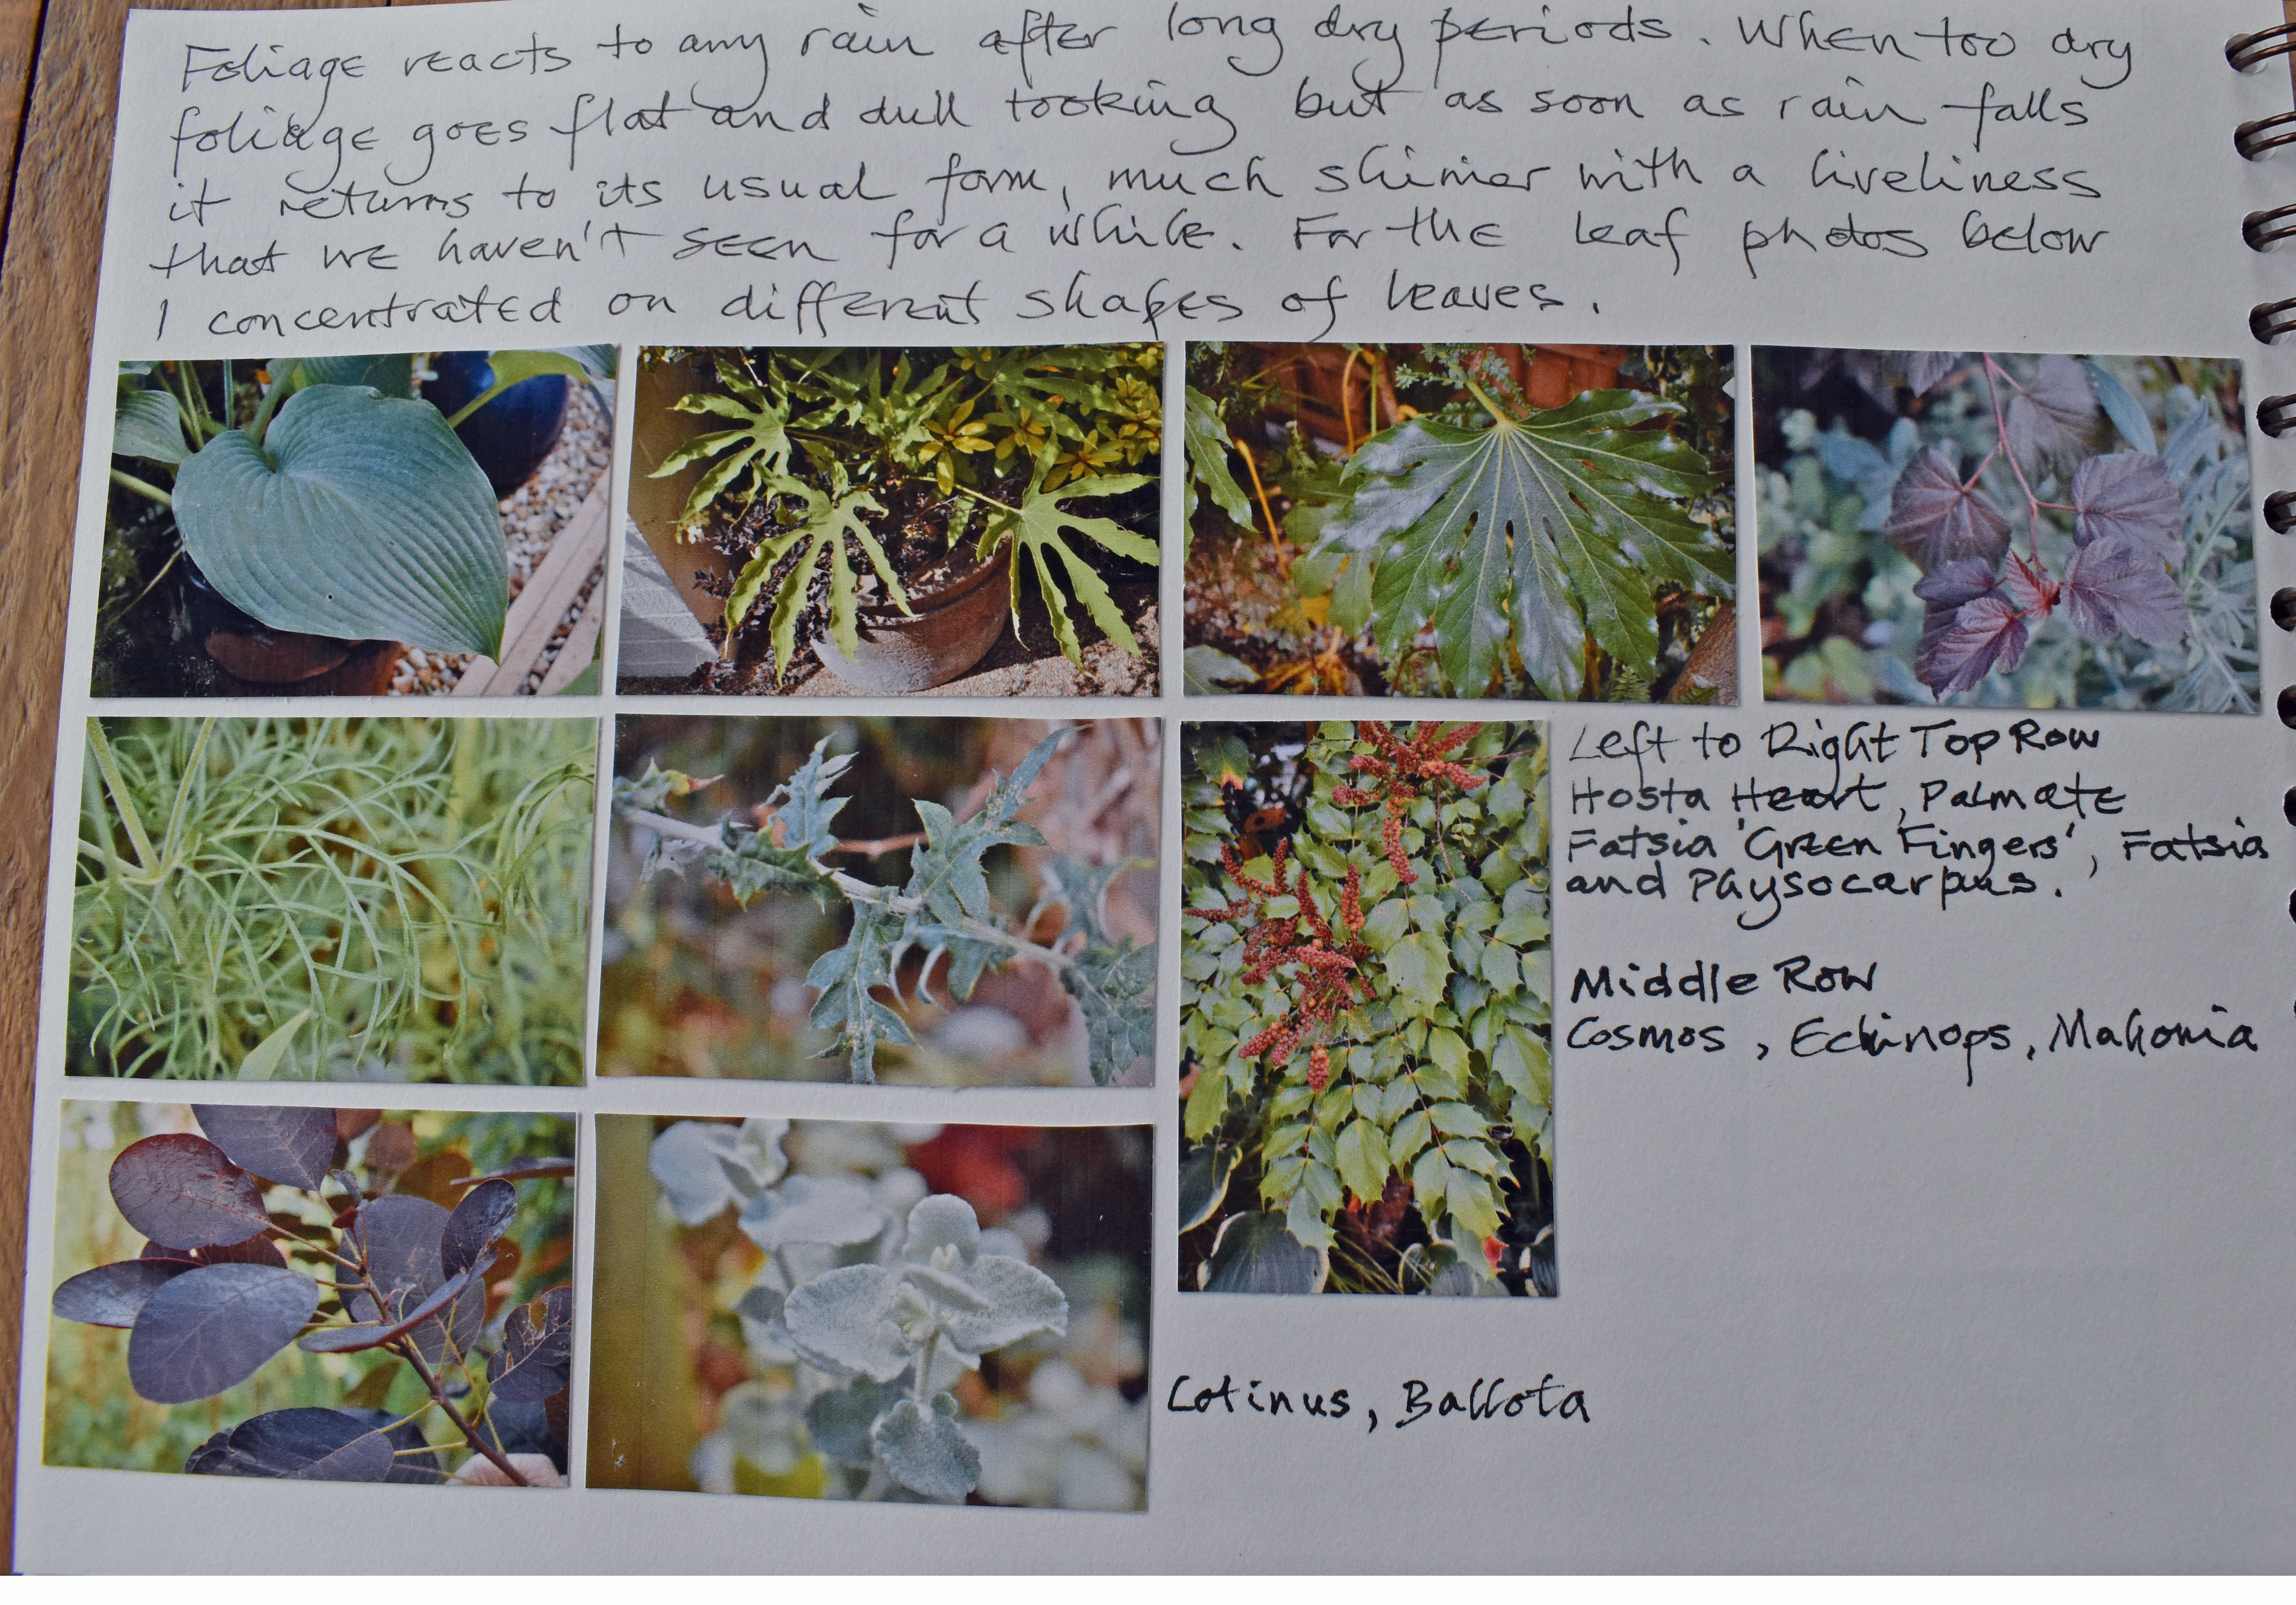 Foliage reacts to any rain after long dry periods. When too dry
foliage goes flat and dull looking but as soon as rain falls
it returns to its usual form, much shinier with a liveliness
that we haven't seen for a while. For the leaf photos below
I concentrated on different shapes of leaves.
Left to Right Top Row
Hosta Heart, Palmate
Fatsia 'Green Fingers', Fatsia
and PhySocarpus.
Middle Row
Cosmos, Echinops, Mahonia
Cotinus, Ballota